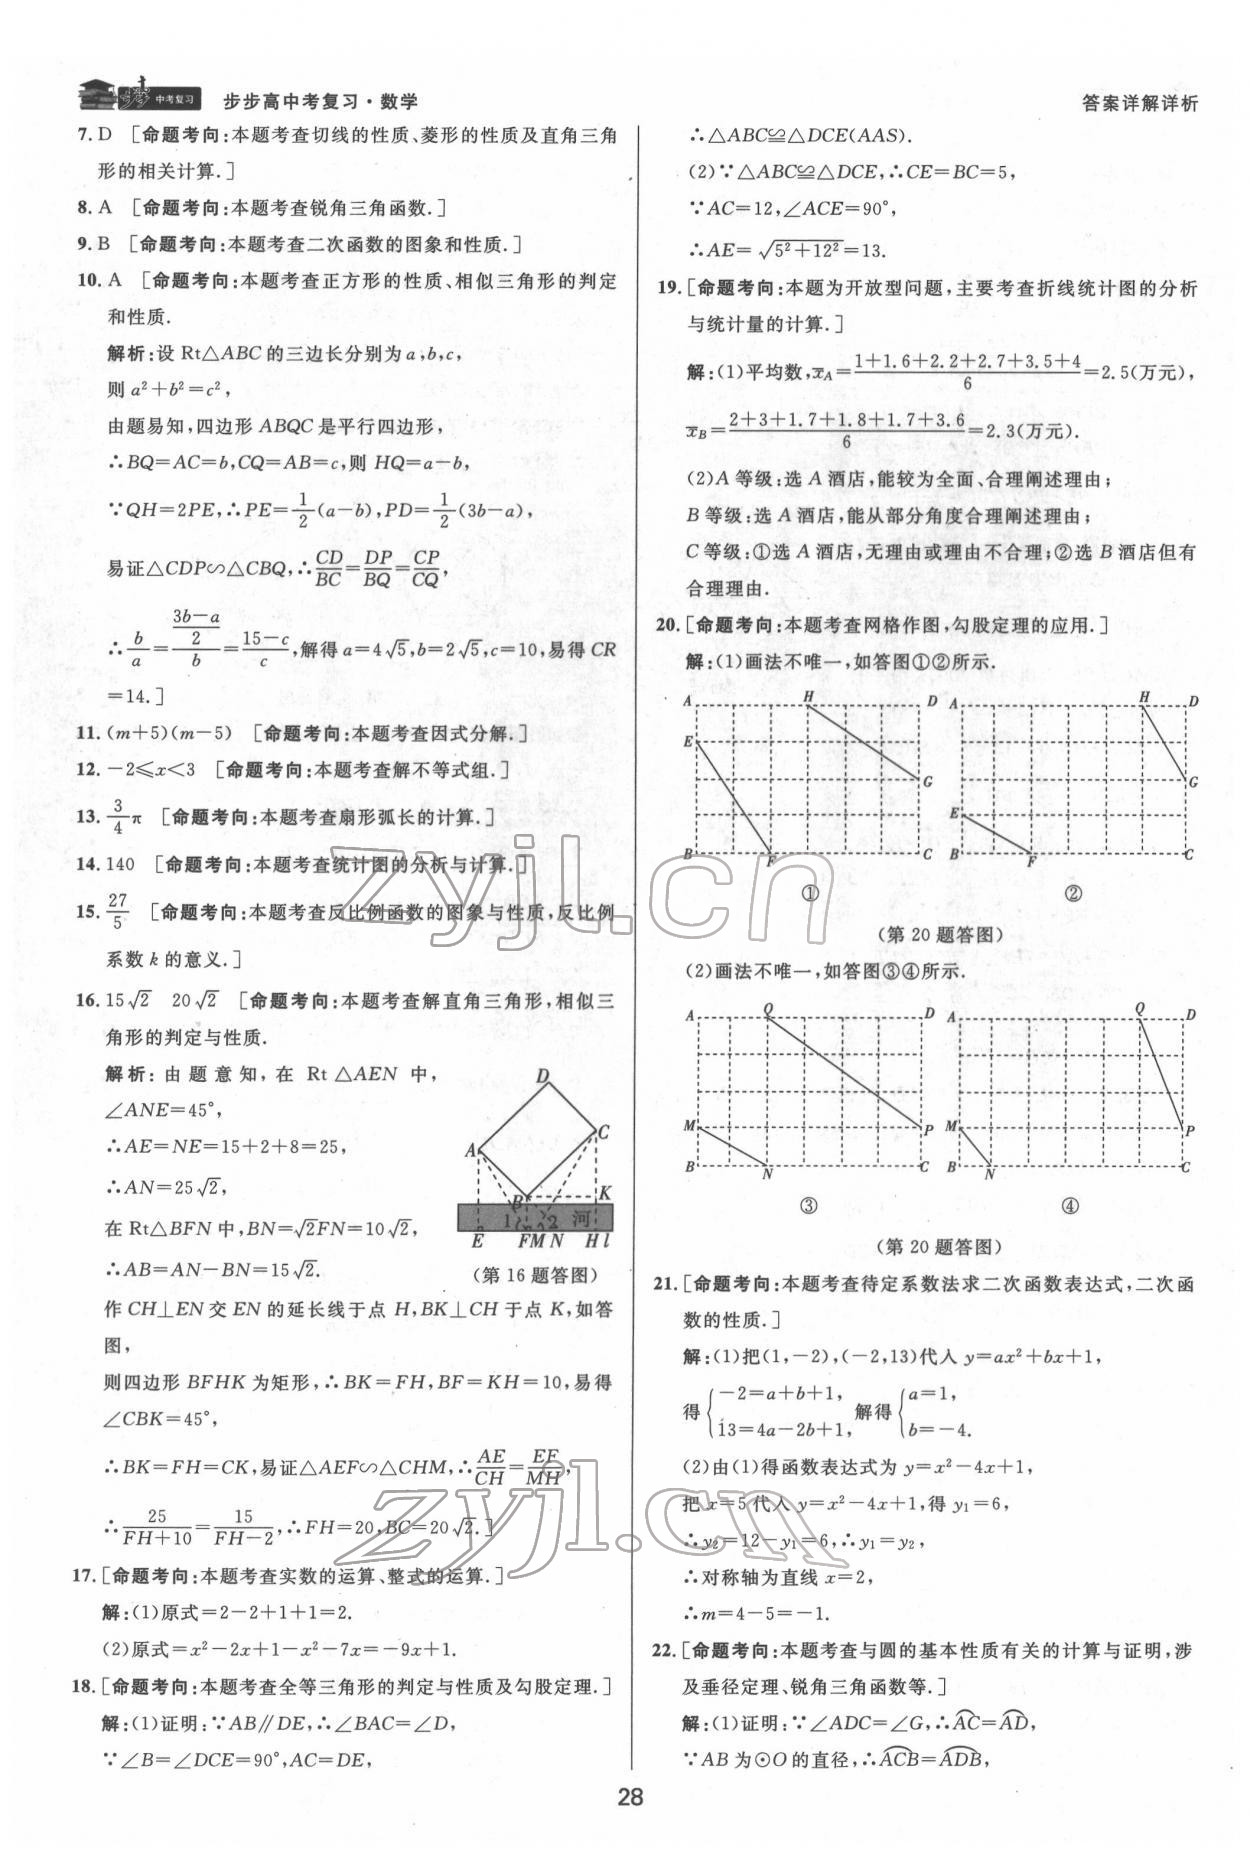 中考复习 步步高中考复习·数学
答案详解详析
7. D [命题考向:本题考查切线的性质、菱形的性质及直角三角
形的相关计算.]
8. A [命题考向:本题考查锐角三角函数.]
9. B [命题考向:本题考查二次函数的图象和性质.]
10. A [命题考向:本题考查正方形的性质、相似三角形的判定
和性质.
解析:设 Rt△ABC 的三边长分别为 a,b,c,
则 a²+b²=c²,
由题易知,四边形 ABQC 是平行四边形,
∴BQ=AC=b,CQ=AB=c,则 HQ=a-b,
∵QH=2PE,∴PE=1/2(a-b),PD=1/2(3b-a),
易证△CDP∽△CBQ,∴CD/BC=DP/BQ=CP/CQ,
∴b/a=((3b-a)/2)/b=(15-c)/c,解得 a=4√5,b=2√5,c=10,易得 CR
=14.]
11. (m+5)(m-5) [命题考向:本题考查因式分解.]
12. -2≤x<3 [命题考向:本题考查解不等式组.]
13. 3/4π [命题考向:本题考查扇形弧长的计算.]
14. 140 [命题考向:本题考查统计图的分析与计算.]
15. 27/5 [命题考向:本题考查反比例函数的图象与性质,反比例
系数 k 的意义.]
16. 15√2 20√2 [命题考向:本题考查解直角三角形,相似三
角形的判定与性质.
解析:由题意知,在 Rt△AEN 中,
∠ANE=45°,
∴AE=NE=15+2+8=25,
∴AN=25√2,
在 Rt△BFN 中,BN=√2FN=10√2,
∴AB=AN-BN=15√2.
D
C
A
B K
1 2 河
E F M N H l
(第 16 题答图)
作 CH⊥EN 交 EN 的延长线于点 H,BK⊥CH 于点 K,如答
图,
则四边形 BFHK 为矩形,∴BK=FH,BF=KH=10,易得
∠CBK=45°,
∴BK=FH=CK,易证△AEF∽△CHM,∴AE/CH=EF/MH,
∴25/(FH+10)=15/(FH-2),∴FH=20,BC=20√2.]
17. [命题考向:本题考查实数的运算、整式的运算.]
解:(1)原式=2-2+1+1=2.
(2)原式=x²-2x+1-x²-7x=-9x+1.
18. [命题考向:本题考查全等三角形的判定与性质及勾股定理.]
解:(1)证明:∵AB∥DE,∴∠BAC=∠D,
∵∠B=∠DCE=90°,AC=DE,
∴△ABC≌△DCE(AAS).
(2)∵△ABC≌△DCE,∴CE=BC=5,
∵AC=12,∠ACE=90°,
∴AE=√(5²+12²)=13.
19. [命题考向:本题为开放型问题,主要考查折线统计图的分析
与统计量的计算.]
解:(1)平均数,x̄A=(1+1.6+2.2+2.7+3.5+4)/6=2.5(万元),
x̄B=(2+3+1.7+1.8+1.7+3.6)/6=2.3(万元).
(2)A 等级:选 A 酒店,能较为全面、合理阐述理由;
B 等级:选 A 酒店,能从部分角度合理阐述理由;
C 等级:①选 A 酒店,无理由或理由不合理;②选 B 酒店但有
合理理由.
20. [命题考向:本题考查网格作图,勾股定理的应用.]
解:(1)画法不唯一,如答图①②所示.
A H D A H D
E
G G
E
B F C B F C
① ②
(第 20 题答图)
(2)画法不唯一,如答图③④所示.
A Q D A Q D
M P M P
B N C B N C
③ ④
(第 20 题答图)
21. [命题考向:本题考查待定系数法求二次函数表达式,二次函
数的性质.]
解:(1)把(1,-2),(-2,13)代入 y=ax²+bx+1,
得{-2=a+b+1, 13=4a-2b+1, 解得{a=1, b=-4.
(2)由(1)得函数表达式为 y=x²-4x+1,
把 x=5 代入 y=x²-4x+1,得 y₁=6,
∴y₂=12-y₁=6,∴y₁=y₂,
∴对称轴为直线 x=2,
∴m=4-5=-1.
22. [命题考向:本题考查与圆的基本性质有关的计算与证明,涉
及垂径定理、锐角三角函数等.]
解:(1)证明:∵∠ADC=∠G,∴A͡C=A͡D,
∵AB 为⊙O 的直径,∴A͡CB=A͡DB,
28
zyjl.cn
zyjl.cn